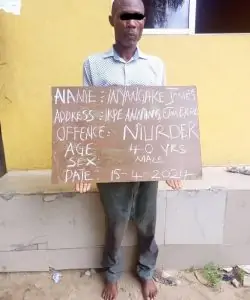 NAME: INYANGAKE JAMES
ADDRESS: IKPE ANNANG, ETIM EKPO
OFFENCE: MURDER
AGE: 40 YRS
SEX: MALE
DATE: 15-4-2024